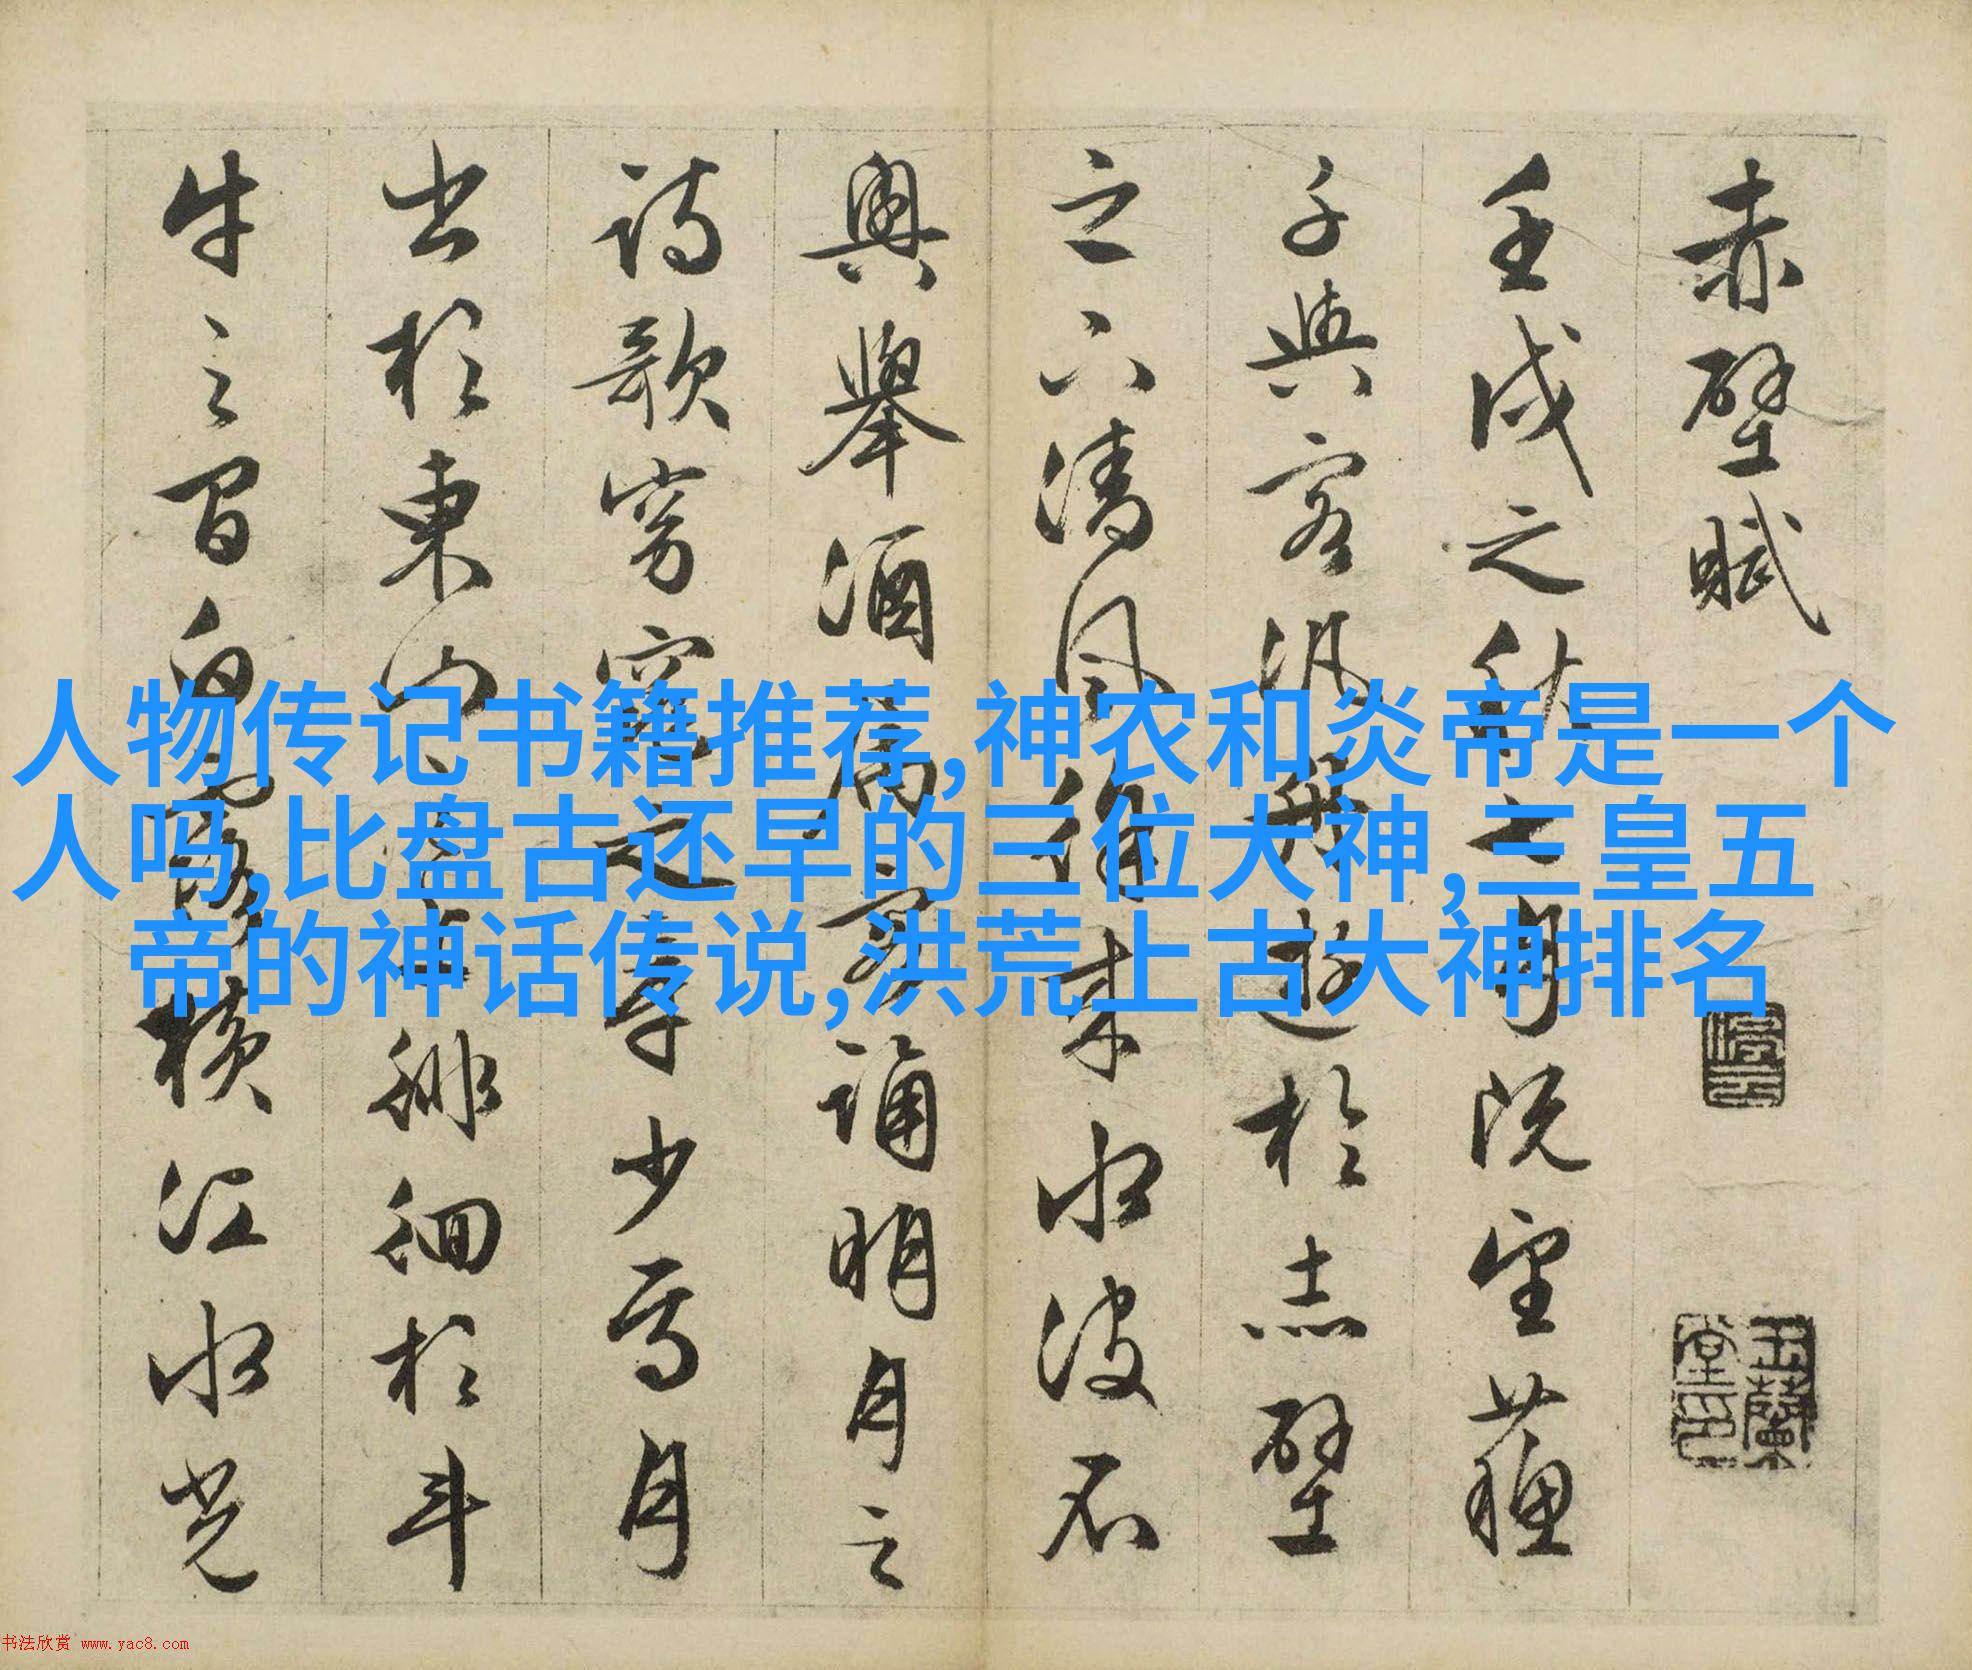 赤壁賦
壬戌之秋七月既望蘇
子與客汎舟遊於赤壁
之下清風徐來水波不
興舉酒屬客誦明月之
詩歌窈窕之章少焉月
出於東山之上徘徊於斗
牛之間白露橫江水光
停雲
玉蘭堂印
人物传记书籍推荐,神农和炎帝是一个
人吗,比盘古还早的三位大神,三皇五
帝的神话传说,洪荒上古大神排名
书法欣赏 www.yac8.com